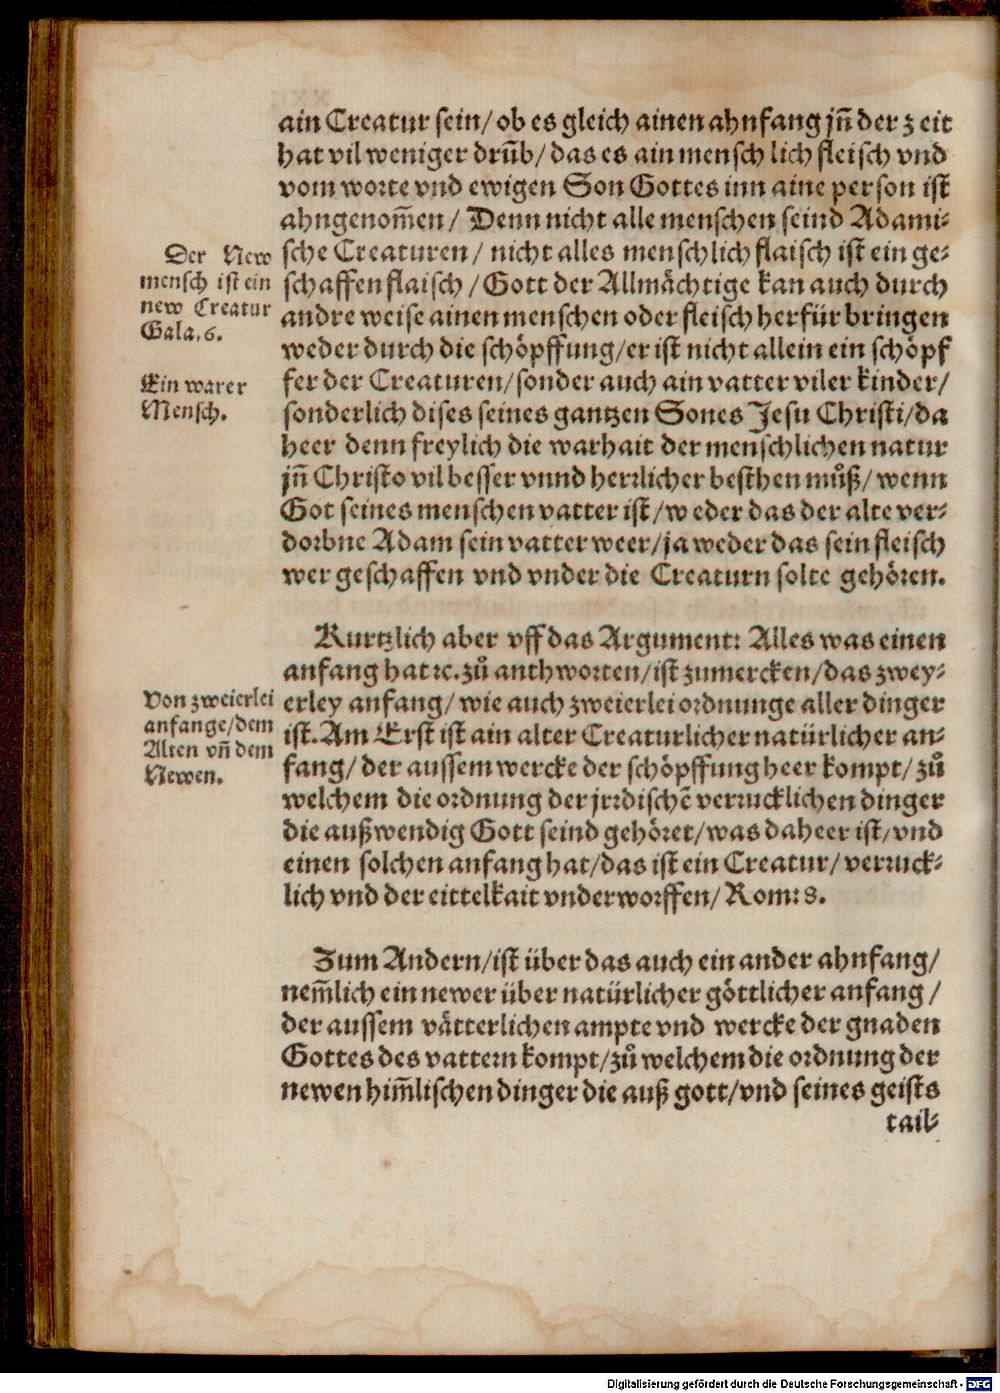 ain Creatur sein/ ob es gleich ainen ahnfang jñ der zeit
hat vil weniger drũb/ das es ain menschlich fleisch vnd
vom worte vnd ewigen Son Gottes inn aine person ist
ahngenom̃en/ Denn nicht alle menschen seind Adami-
sche Creaturen/ nicht alles menschlich flaisch ist ein ge-
schaffen flaisch/ Gott der Allmächtige kan auch durch
andre weise ainen menschen oder fleisch herfür bringen
weder durch die schöpffung/ er ist nicht allein ein schöpf
fer der Creaturen/ sonder auch ain vatter viler kinder/
sonderlich dises seines gantzen Sones Jesu Christi/ da
heer denn freylich die warhait der menschlichen natur
jñ Christo vil besser vnnd herrlicher besthen můß/ wenn
Got seines menschen vatter ist/ weder das der alte ver-
dorbne Adam sein vatter weer/ ja weder das sein fleisch
wer geschaffen vnd vnder die Creaturn solte gehören.
Der New
mensch ist ein
new Creatur
Gala. 6.
Ein warer
Mensch.
Kurtzlich aber vff das Argument: Alles was einen
anfang hat ꝛc. zů anthworten/ ist zumercken/ das zwey-
erley anfang/ wie auch zweierlei ordnunge aller dinger
ist. Am Erst ist ain alter Creaturlicher natürlicher an-
fang/ der aussem wercke der schöpffung heer kompt/ zů
welchem die ordnung der jrrdischẽ verrucklichen dinger
die außwendig Gott seind gehöret/ was daheer ist/ vnd
einen solchen anfang hat/ das ist ein Creatur/ verruck-
lich vnd der eittelkait vnderworffen/ Rom: 8.
Von zweierlei
anfange/ dem
Alten vñ dem
Newen.
Zum Andern/ ist über das auch ein ander ahnfang/
nem̃lich ein newer über natürlicher göttlicher anfang/
der aussem vätterlichen ampte vnd wercke der gnaden
Gottes des vattern kompt/ zů welchem die ordnung der
newen him̃lischen dinger die auß gott/ vnd seines geists
tail-
Digitalisierung gefördert durch die Deutsche Forschungsgemeinschaft - DFG